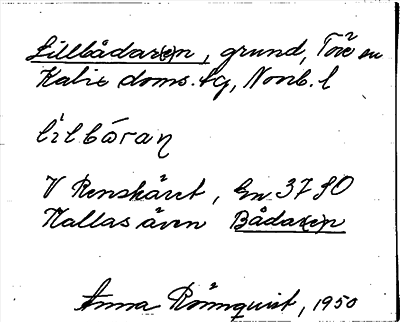 Lillbådaren, grund, Töre sn
Kalix doms. lg, Norrb. l
lilbåran
V Renskäret, En 3780
Kallas även Bådaren
Anna Rönnquist, 1950